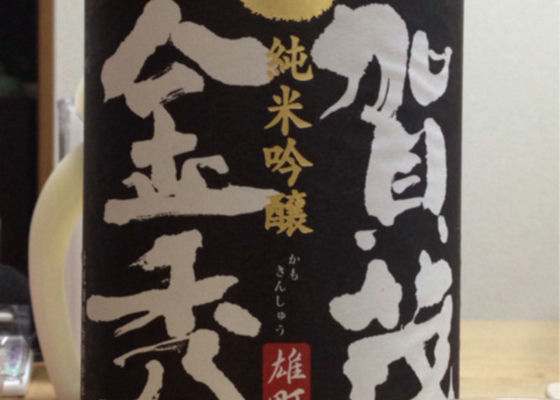 賀茂
純米吟醸
かも
きんしゅう
雄町
金秀